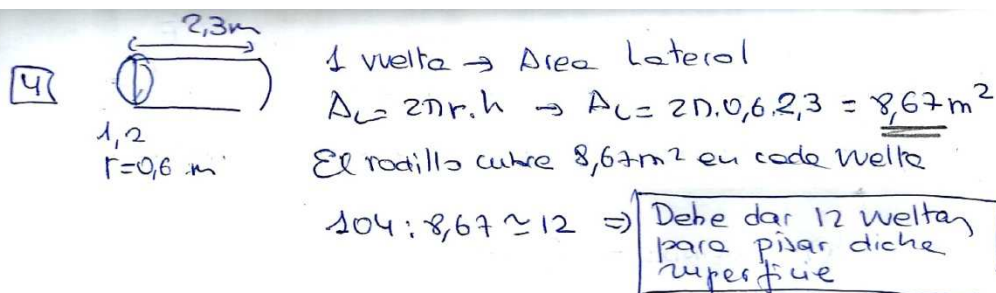 2,3m
4
1,2
r=0,6 m
1 vuelta → Area Lateral
AL= 2πr.h → AL= 2π.0,6.2,3 = 8,67m²
El rodillo cubre 8,67m² en cada vuelta
104:8,67≃12 ⇒ Debe dar 12 vueltas
para pisar dicha
superficie